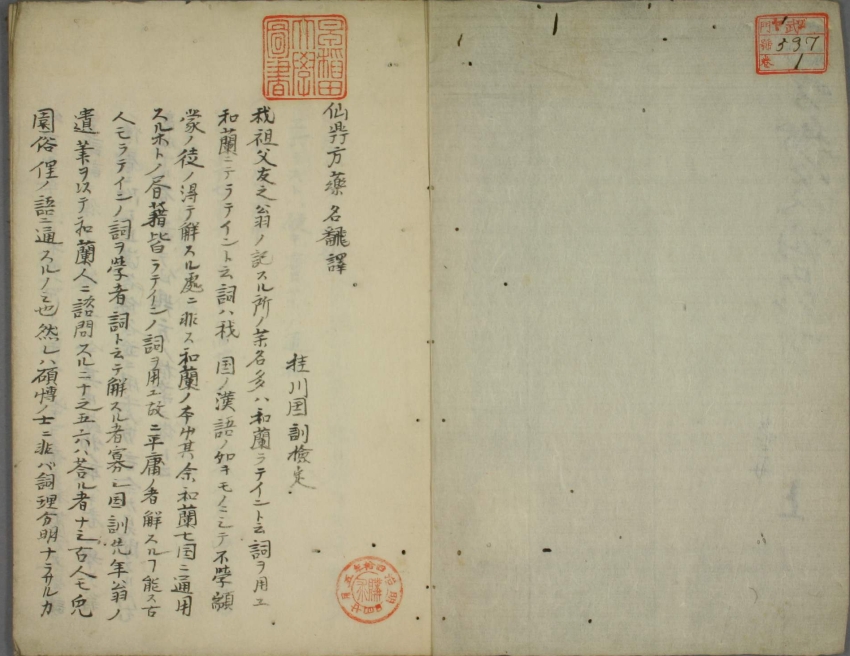 門 武
雑 597
巻 1
仙丹方藥名飜譯
桂川国訓検定
我祖父友之翁ノ記スル所ノ薬名多ハ和蘭ラテイント云詞ヲ用ユ
和蘭ニテラテイント云詞ハ我国ノ漢語ノ如キモノニシテ不学
蒙ノ徒ノ得テ解スル處ニ非ス和蘭ノ本其余和蘭七国ニ通用
スルホトノ書籍皆ラテイノ詞ヲ用ユ故ニ平庸ノ者解スルフ能ス古
人モラテインノ詞ヲ学者詞ト云テ解スル者寡シ国訓先年翁ノ
遺業ヲ以テ和蘭人ニ諮問スルニ十之五六八答ル者ナシ古人モ
園俗俚ノ語ニ通スルノミ也然レハ碩博ノ士ニ非ハ詞理分明ナラサルカ